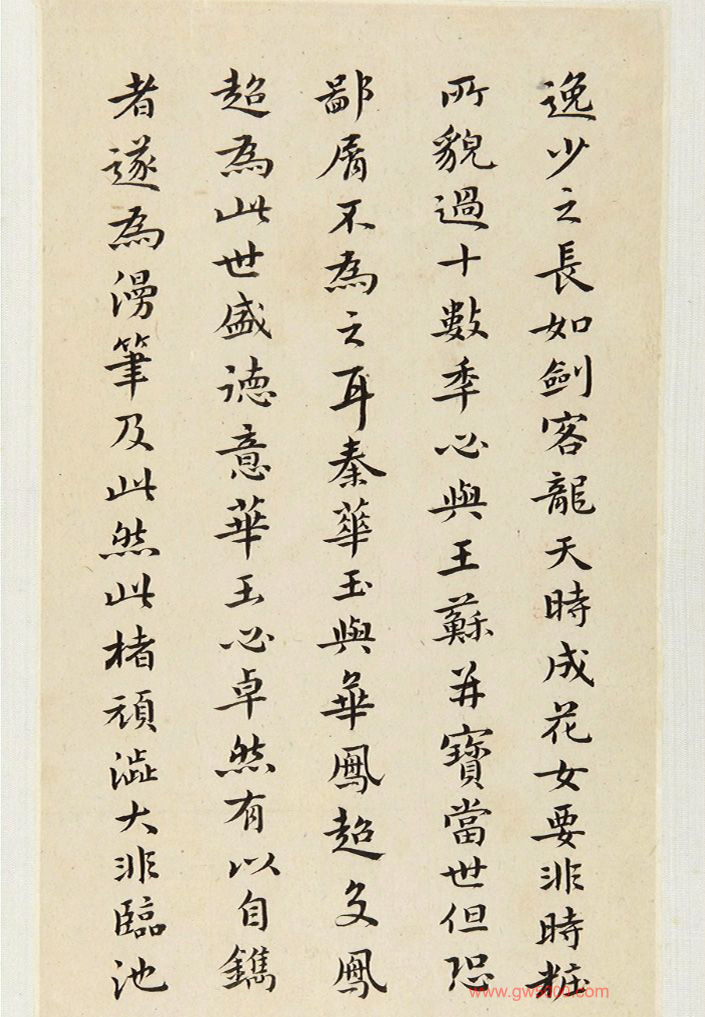 逸少之長如劍客龍天時成花女要非時粧
所貌過十數季必與王蘇并寶當世但恐
鄙屑不為之耳秦華玉與華鳳超交鳳
超為此世盛德意華玉必卓然有以自鐫
者遂為漫筆及此然此楮頑澁大非臨池
www.gw5000.com